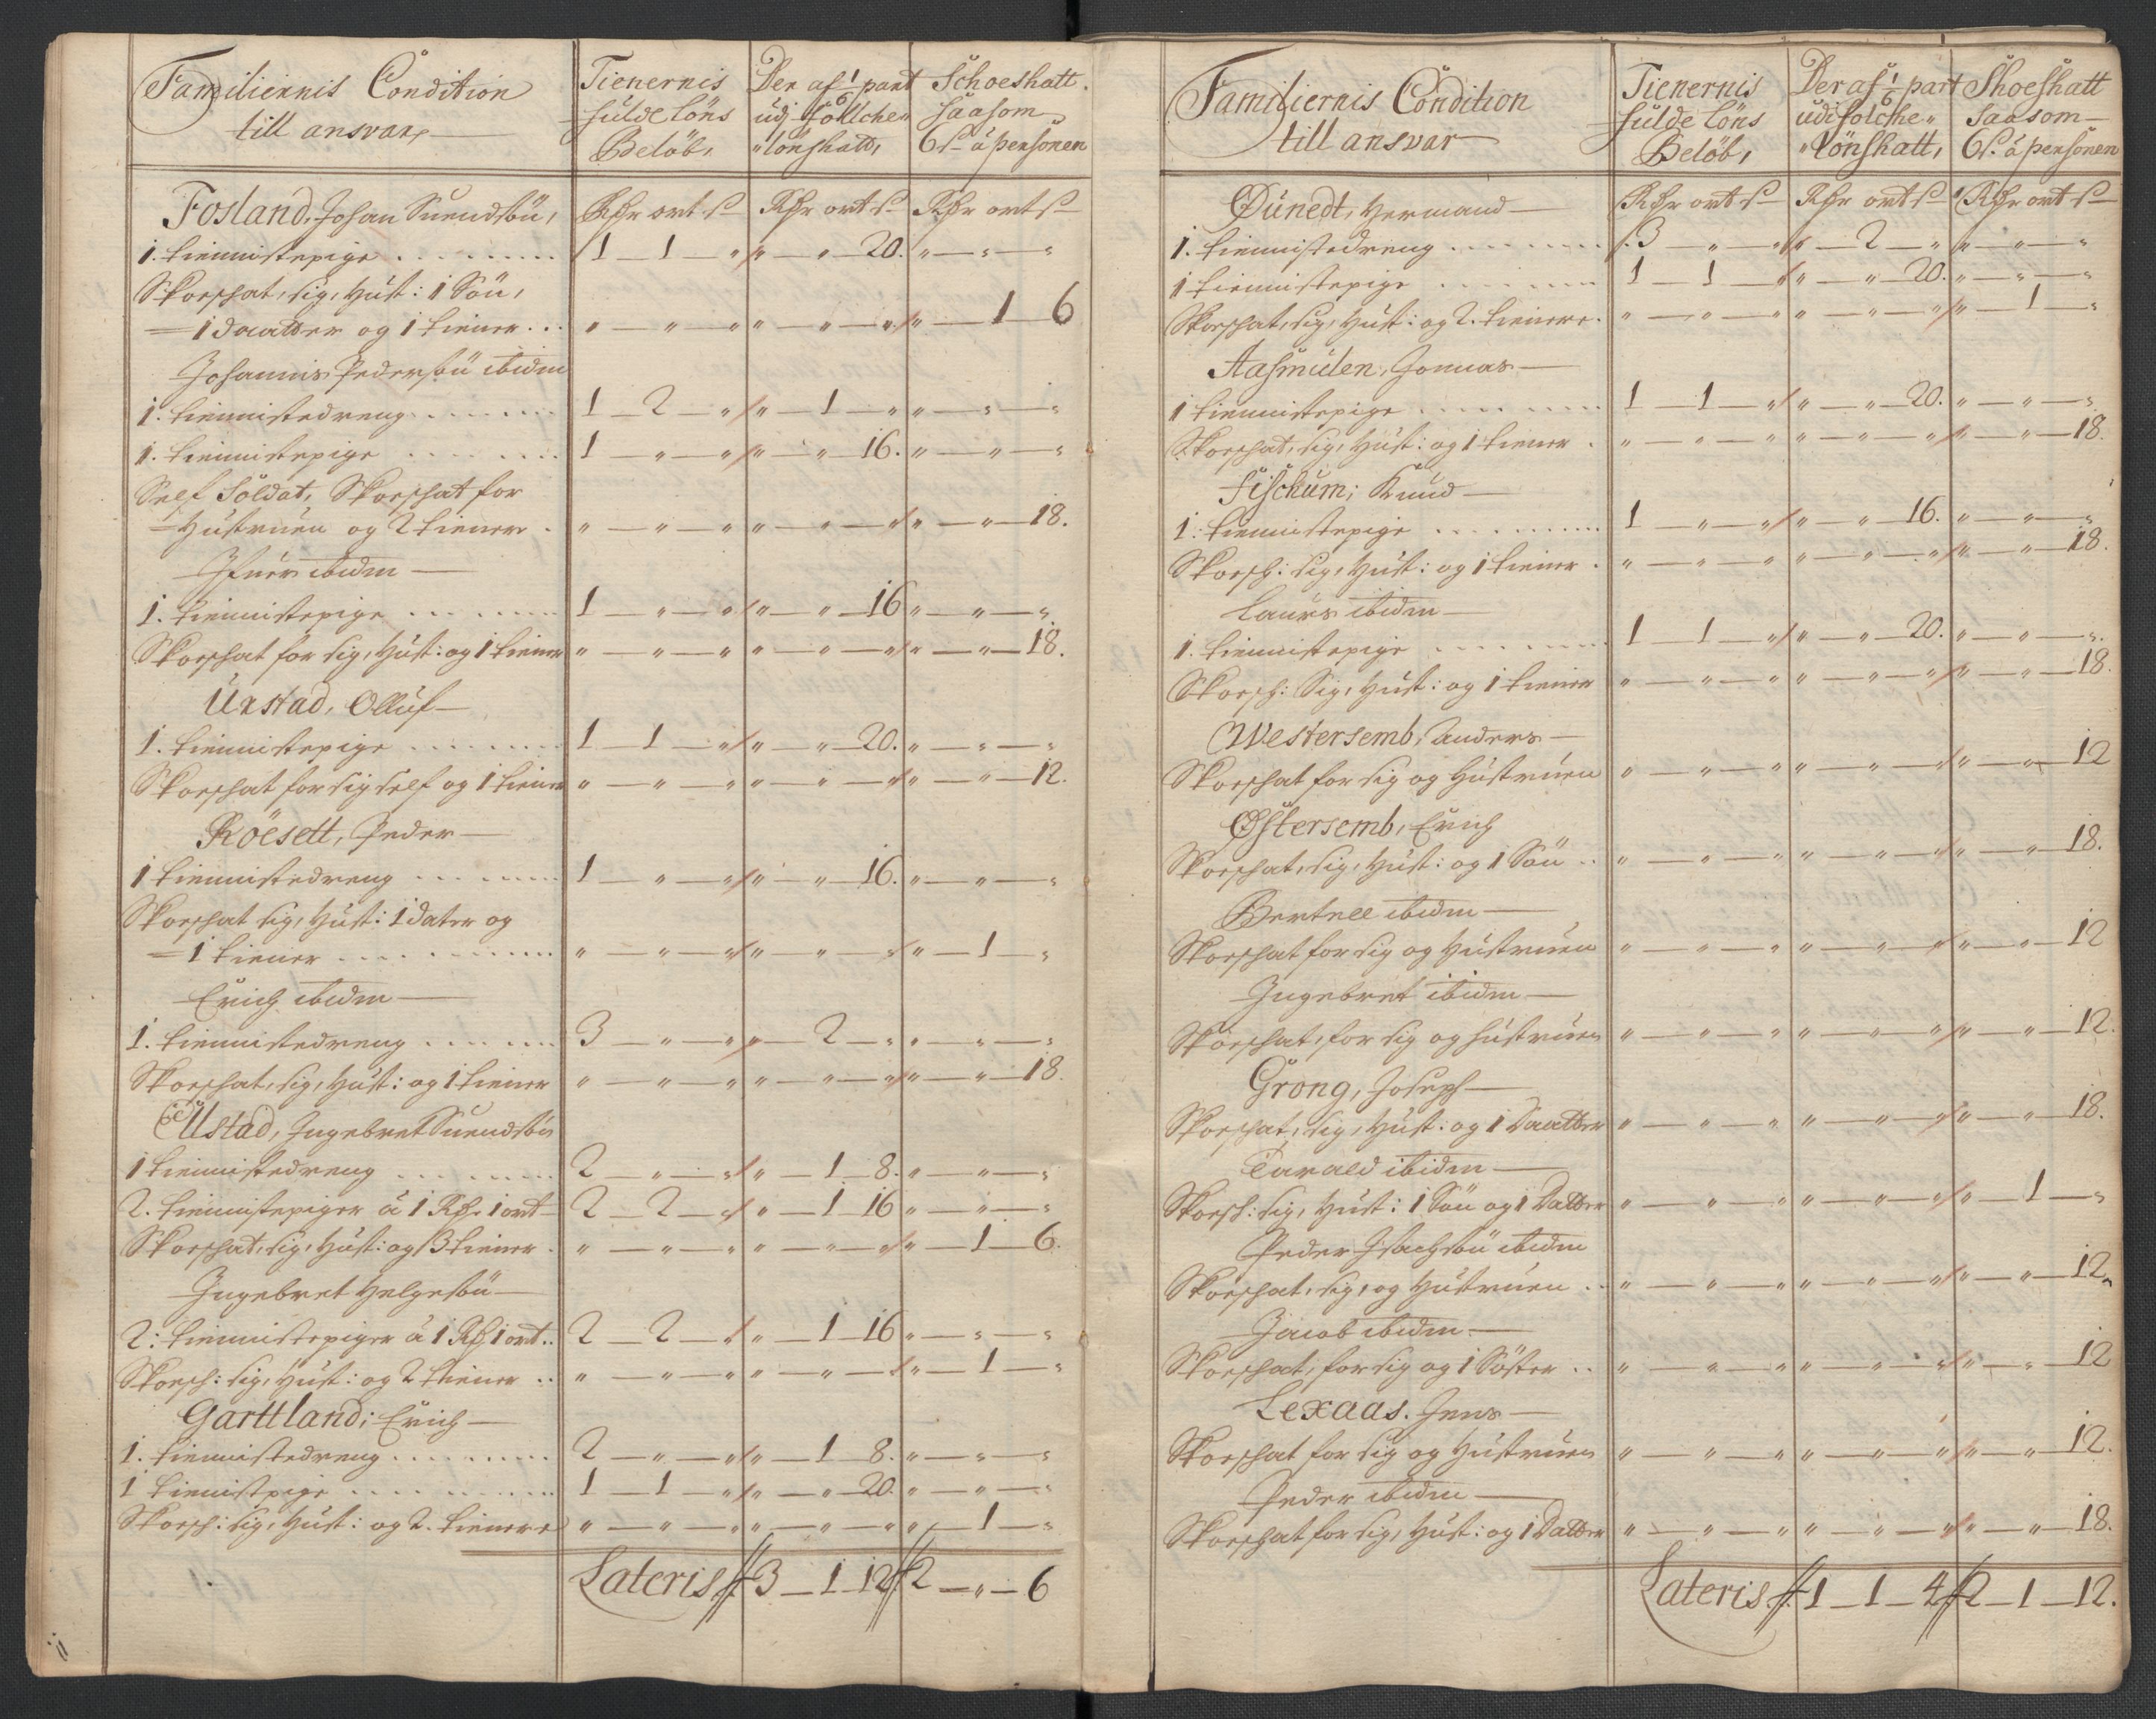 Familiernis Condition
till ansvar,
Tienernis
fulde löns
Belöb,
Der af 1/6 part
udj sollche
lönskatt,
Schoeskatt
saasom
6 s. à personen
Fosland, Johan Suendsön,
Rdr ort s Rdr ort s Rdr ort s
1. tiennistepige 1 — 1 — " " — " — 20. " — " — "
Skoeschat, sig, Hust: 1 Sön,
= 1 daatter og 1 tiener " — " — " " — " — " " — 1 — 6
Johannis Pedersön ibidm
1. tiennistedreng 1 — 2 — " " — 1 — " " — " — "
1. tiennistepige 1 — " — " " — " — 16. " — " — "
Self Soldat, Skoeschat for
= Hustruen og 2 tiener " — " — " " — " — " " — " — 18.
Ifuer ibidm
1. tiennistepige 1 — " — " " — " — 16 " — " — "
Skoeschat for sig, Hust: og 1 tiener " — " — " " — " — " " — " — 18.
Urstad, Olluf
1. tiennistepige 1 — 1 — " " — " — 20. " — " — "
Skoeschat for sig self og 1 tiener " — " — " " — " — " " — " — 12.
Röesett, Peder
1 tiennistedreng 1 — " — " " — " — 16. " — " — "
Skoeschat sig, Hust: 1 dater og
= 1 tiener " — " — " " — " — " " — 1 — "
Erich ibidm
1. tiennistedreng 3 — " — " " — 2 — " " — " — "
Skoeschat, sig, Hust: og 1 tiener " — " — " " — " — " " — " — 18.
Ullstad, Ingebret Suendsön
1 tiennistedreng 2 — " — " " — 1 — 8. " — " — "
2. tiennistepiger à 1 Rdr 1 ort 2 — 2 — " " — 1 — 16 " — " — "
Skoeschat, sig, Hust: og 3 tiener " — " — " " — " — " " — 1 — 6.
Ingebret Helgesön
2: tiennistepiger à 1 Rdr 1 ort 2 — 2 — " " — 1 — 16 " — " — "
Skoesch: sig, Hust: og 2 tiener " — " — " " — " — " " — 1 — "
Garttland, Erich
1. tiennistedreng 2 — " — " " — 1 — 8. " — " — "
1 tiennistpige 1 — 1 — " " — " — 20. " — " — "
Skoesch: sig, Hust: og 2. tienere " — " — " " — " — " " — 1 — "
Lateris 3 — 1 — 12 2 — " — 6
Familiernis Condition
till ansvar
Tienernis
fulde löns
Belöb,
Der af 1/6 part
udi solche
lönskatt,
Skoeskatt
saasom
6 s. à personen
Dunedt, Hermand
Rdr ort s Rdr ort s Rdr ort s
1. tiennistedreng 3 — " — " " — 2 — " " — " — "
1 tiennistepige 1 — 1 — " " — " — 20. " — " — "
Skoeschat, sig, Hust: og 2. tienere " — " — " " — " — " " — 1 — "
Aasmulen, Jonnas
1 tiennistepige 1 — 1 — " " — " — 20. " — " — "
Skoeschat, sig, Hust: og 1 tiener " — " — " " — " — " " — " — 18.
Fischum; Knud
1. tiennistepige 1 — " — " " — " — 16. " — " — "
Skoesch: sig, Hust: og 1 tiener " — " — " " — " — " " — " — 18.
Laurs ibidm
1. tiennistepige 1 — 1 — " " — " — 20. " — " — "
Skoesch: Sig, Hust: og 1 tiener " — " — " " — " — " " — " — 18.
Westersemb, Anders
Skoeschat for sig og Hustruen " — " — " " — " — " " — " — 12
Østersemb, Erich
Skoeschat, sig, Hust: og 1 Sön " — " — " " — " — " " — " — 18.
Bertell ibidm
Skoeschat for sig og Hustruen " — " — " " — " — " " — " — 12
Ingebret ibidm
Skoeschat, for sig og hustruen " — " — " " — " — " " — " — 12.
Grong, Joseph
Skoeschat, sig, Hust: og 1 Daatter " — " — " " — " — " " — " — 18.
Tarald ibidm
Skoesch: sig, Hust: 1 Sön og 1 Datter " — " — " " — " — " " — 1 — "
Peder Isachsön ibidm
Skoeschat, sig, og Hustruen " — " — " " — " — " " — " — 12
Jacob ibidm
Skoeschat, for sig og 1 Söster " — " — " " — " — " " — " — 12
Lexaas. Jens
Skoeschat for sig og Hustruen " — " — " " — " — " " — " — 12.
Peder ibidm
Skoeschat for sig, Hust: og 1 Datter " — " — " " — " — " " — " — 18.
Lateris 1 — 1 — 4 2 — 1 — 12.